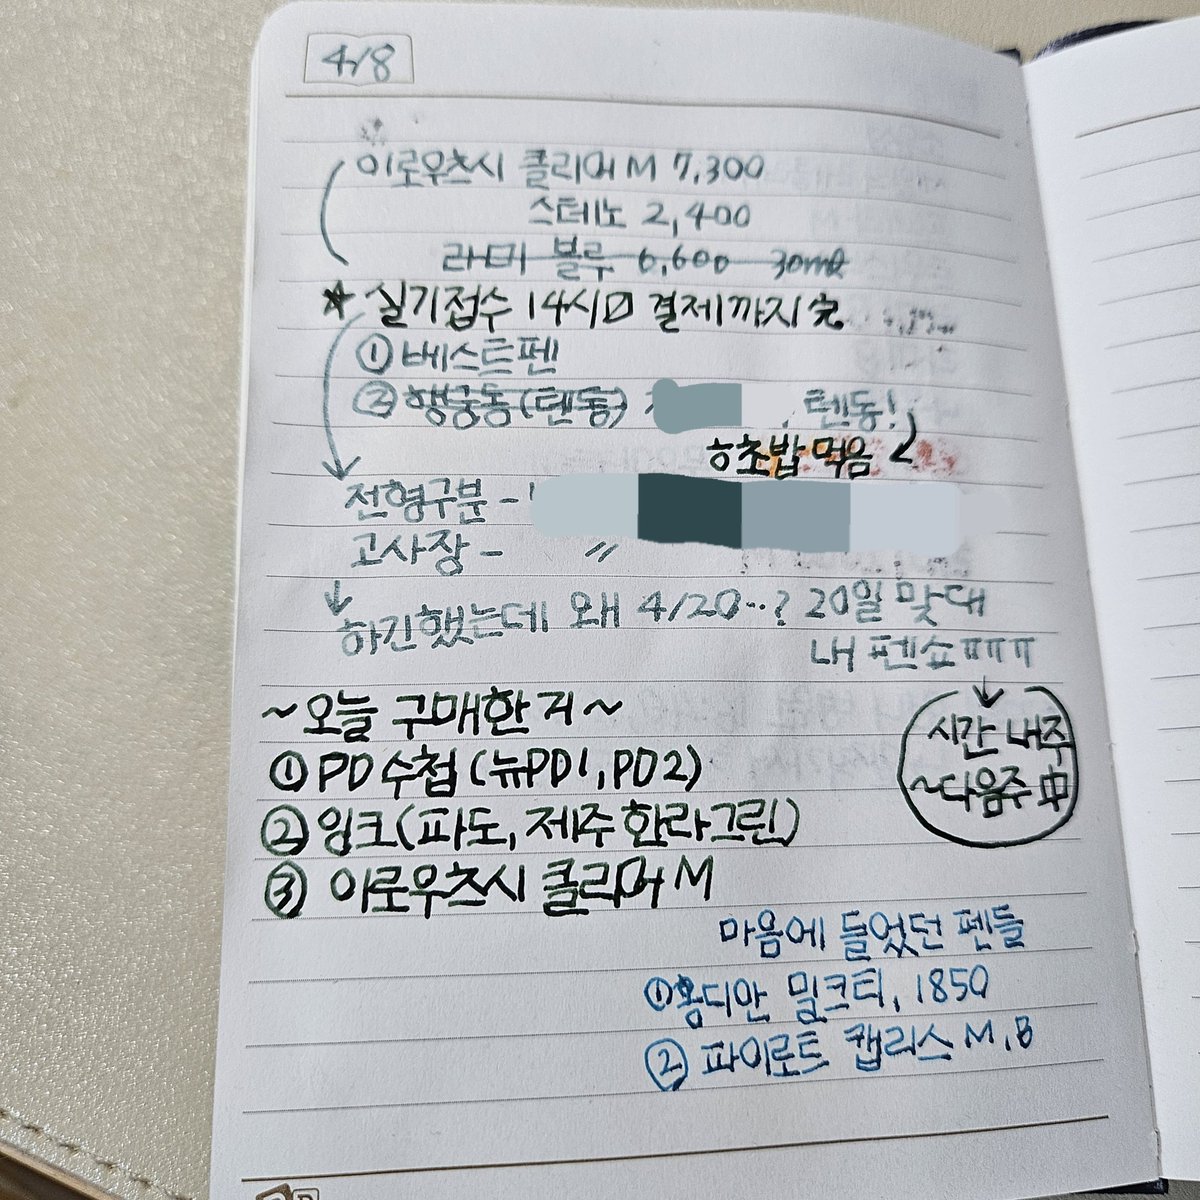 4/8
이로우츠시 클리어 M 7,300
스테노 2,400
라미 블루 6,600 30ml
★ 실기접수 14시 결제까지 完
① 베스트펜
② 행궁동(텐동) 텐동!
초밥 먹음
전형구분 -
고사장 - 〃
하긴했는데 왜 4/20..? 20일 맞대
내 펜쇼ㅠㅠㅠ
~오늘 구매한 거~
시간 내주
~다음주 中
① PD수첩 (뉴PD1, PD2)
② 잉크(파도, 제주한라그린)
③ 이로우츠시 클리어 M
마음에 들었던 펜들
① 홍디안 밀크티, 1850
② 파이로트 캡리스 M, B